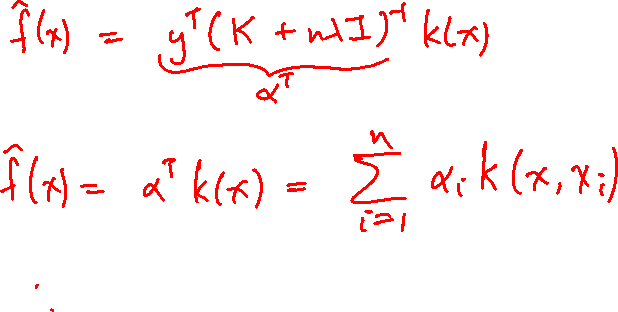 f̂(x) = yᵀ(K + nλI)⁻¹ k(x)
αᵀ
f̂(x) = αᵀ k(x) = ∑ᵢ₌₁ⁿ αᵢ k(x, xᵢ)